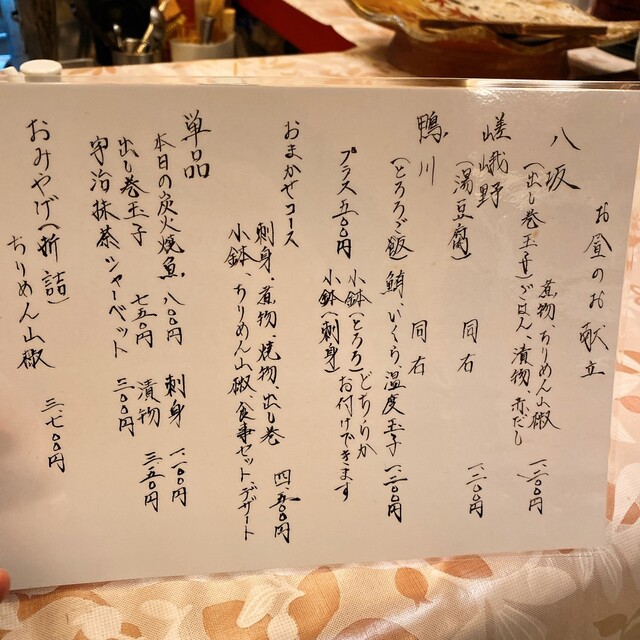 お昼のお献立
八坂
(出し巻玉子) 煮物、ちりめん山椒
ごはん、漬物、赤だし 一、一〇〇円
嵯峨野
(湯豆腐) 同右 一、二〇〇円
鴨川 同右
(とろろご飯) 鮹、いくら、温度玉子 一、二〇〇円
プラス五〇〇円 小鉢(とろろ) どちらか
小鉢(刺身) お付けできます
おまかせコース
刺身、煮物、焼物、出し巻 四、五〇〇円
小鉢、ちりめん山椒、食事セット、デザート
単品
本日の炭火焼魚 八〇〇円 刺身 一、一〇〇円
出し巻玉子 七五〇円 漬物 三五〇円
宇治抹茶シャーベット 三〇〇円
おみやげ(折詰)
ちりめん山椒 三、七〇〇円